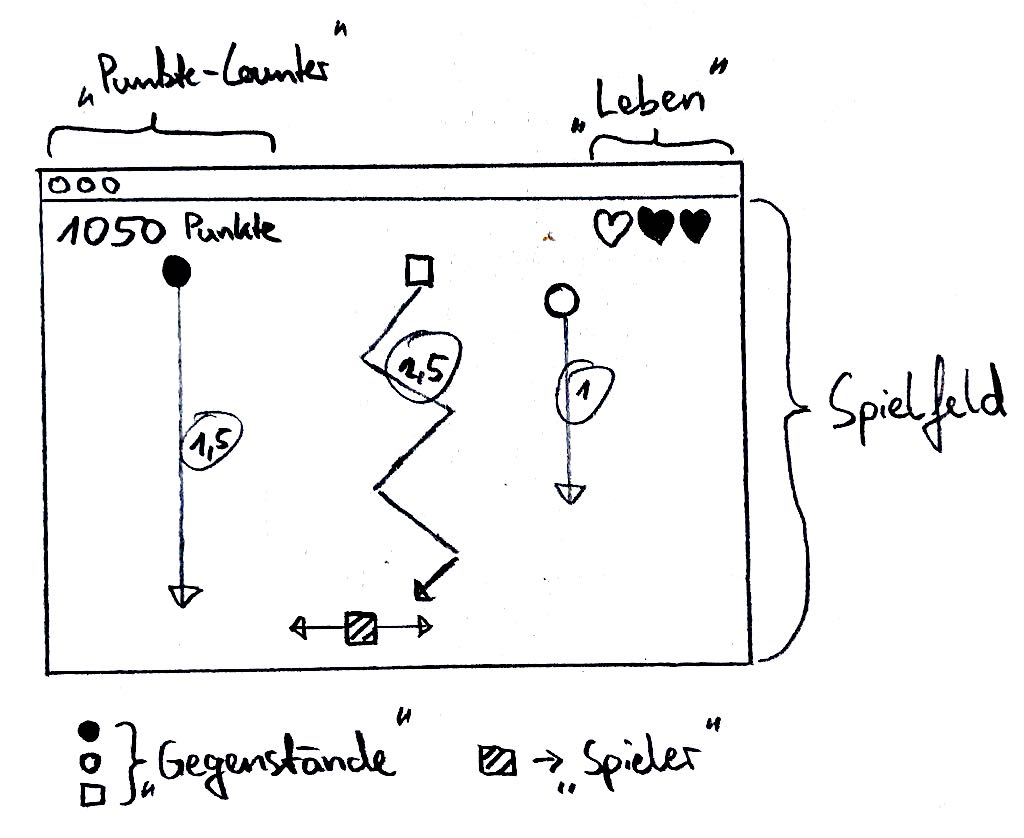 „Punkte-Counter"
„Leben"
1050 Punkte
1,5
1,5
1
Spielfeld
„Gegenstände"
→ „Spieler"